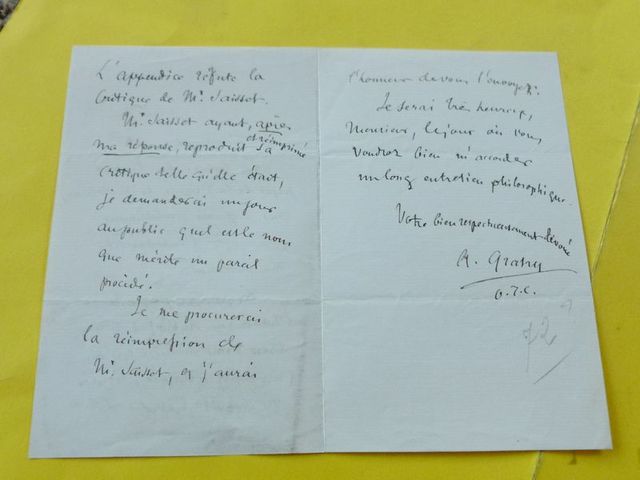 L'appendice réfute la
Critique de Mr. Saisset.
Mr. Saisset ayant, après
ma réponse, reproduit et réimprimé sa
critique telle qu'elle était,
je demanderai un jour
au public quel est le nom
que mérite un pareil
procédé.
Je me procurerai
la réimpression de
Mr. Saisset, et j'aurai
l'honneur de vous l'envoyer.
Je serai très heureux,
Monsieur, le jour où vous
voudrez bien m'accorder
un long entretien philosophique.
Votre bien respectueusement dévoué
A. Gratry
72